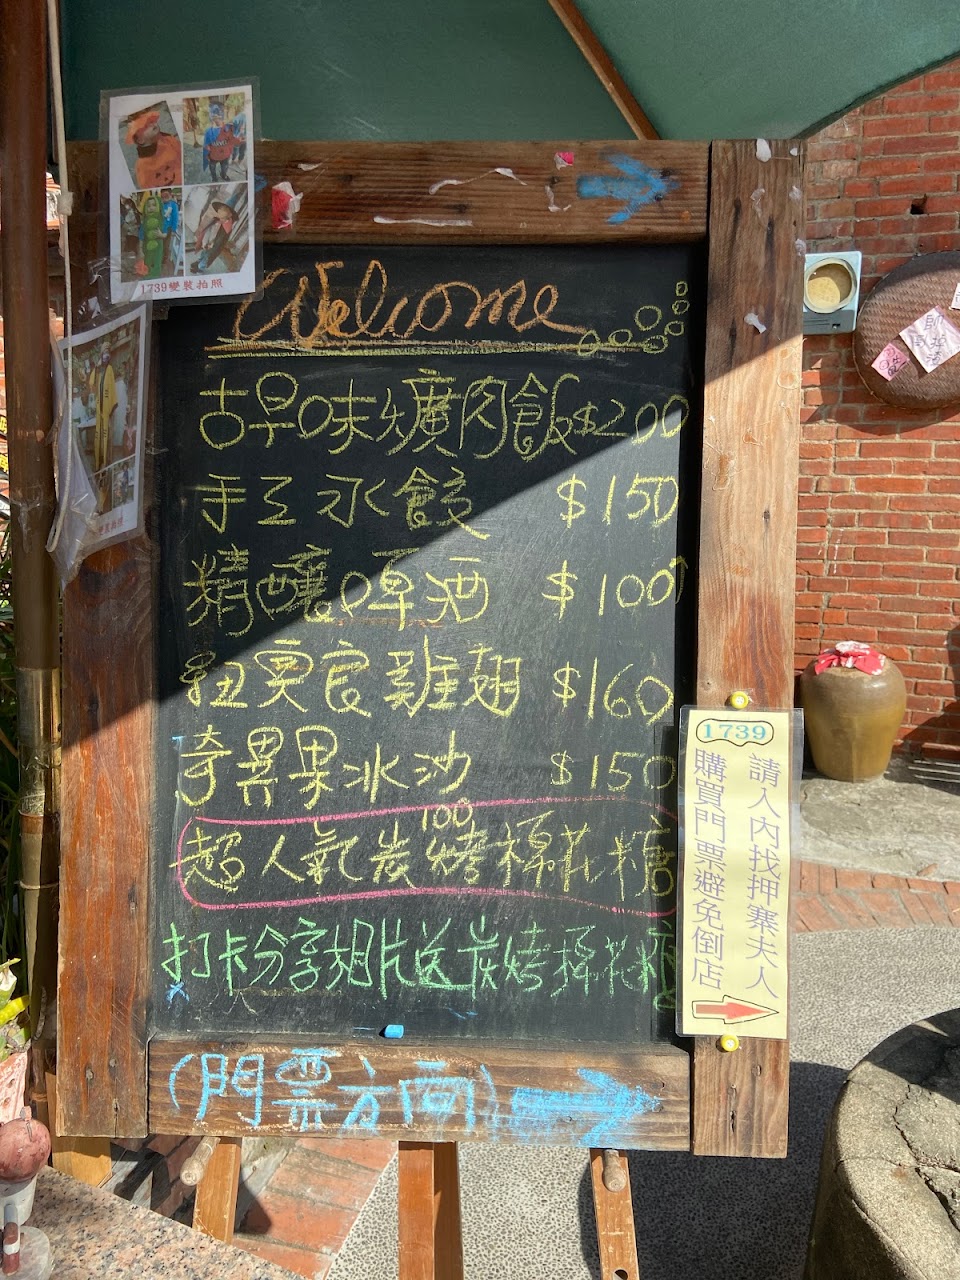 1739變裝拍照
Welcome
古早味爌肉飯$200
手工水餃 $150
精釀啤酒 $100↑
紐奧良雞翅 $160
奇異果冰沙 $150
100
超人氣炭烤棉花糖
打卡分享相片送炭烤棉花糖
(門票方向)
1739
請入內找押寨夫人
購買門票避免倒店